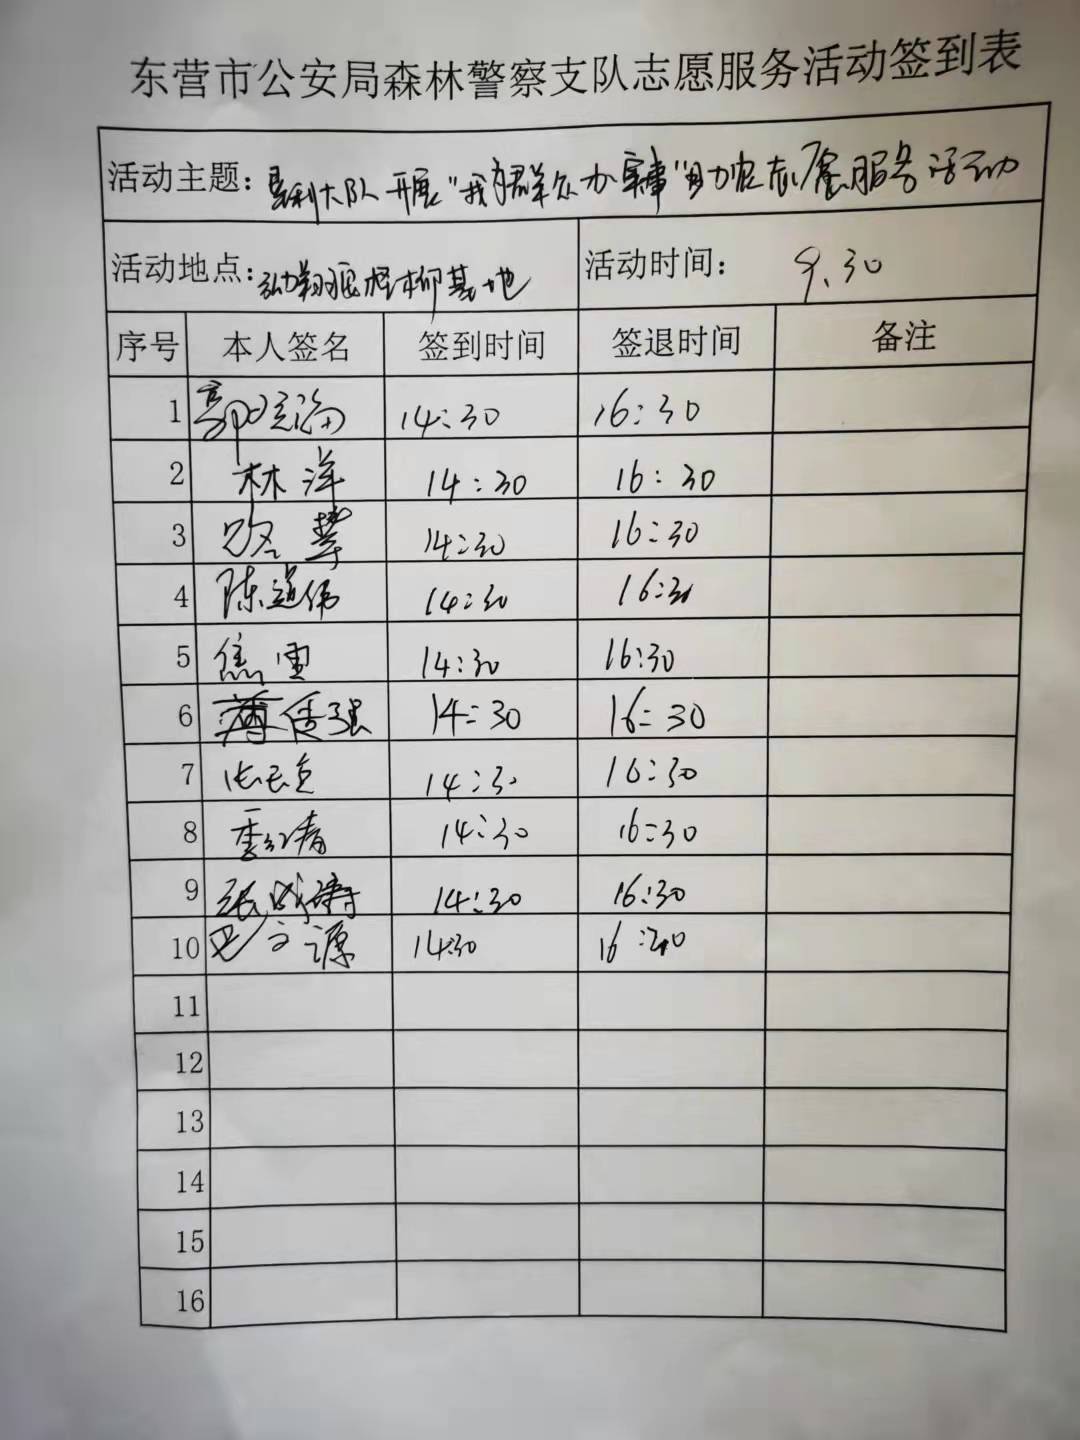 东营市公安局森林警察支队志愿服务活动签到表
活动主题：垦利大队开展"我为群众办实事"助农志愿服务活动
活动地点： 柽柳基地 活动时间： 9.30
序号 本人签名 签到时间 签退时间 备注
1 郭 14:30 16:30
2 林洋 14:30 16:30
3 路 14:30 16:30
4 陈道伟 14:30 16:30
5 焦雷 14:30 16:30
6 薄 强 14:30 16:30
7 14:30 16:30
8 季 14:30 16:30
9 张 涛 14:30 16:30
10 巴文源 14:30 16:30
11
12
13
14
15
16